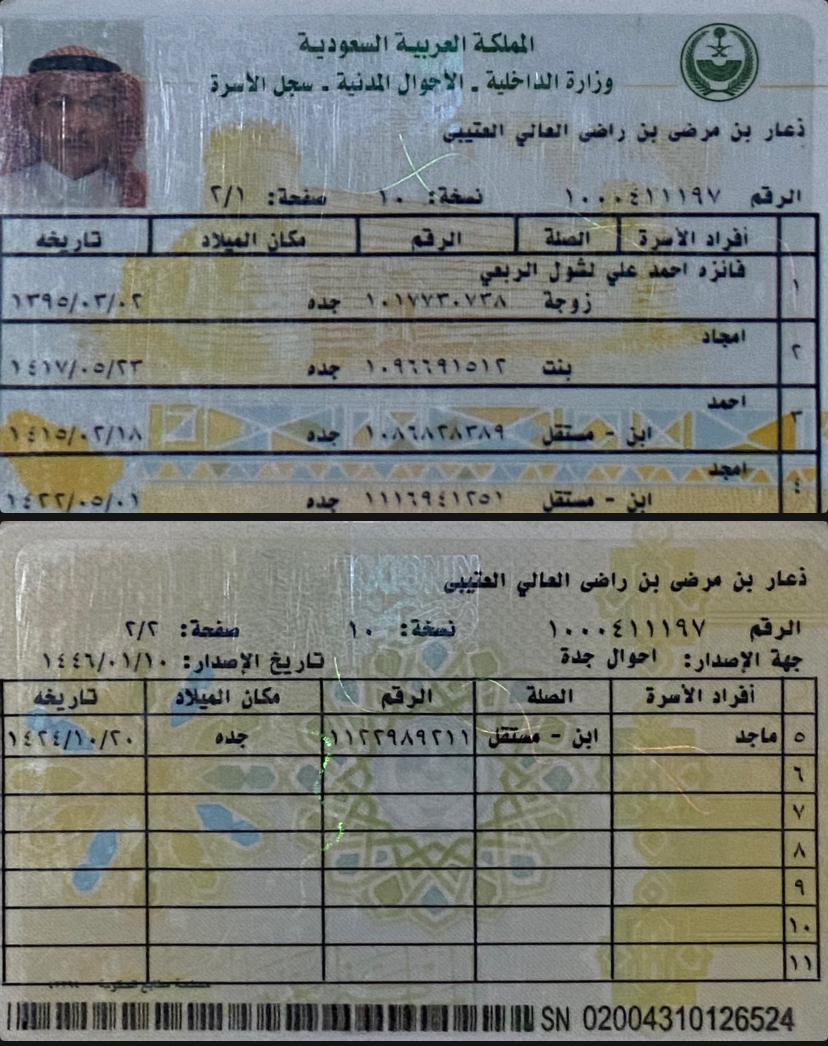 المملكة العربية السعودية
وزارة الداخلية ـ الأحوال المدنية ـ سجل الأسرة
ذعار بن مرضى بن راضى العالي العتيبى
الرقم ١٠٠٠٤١١١٩٧ نسخة: ١٠ صفحة: ٢/١
أفراد الأسرة الصلة الرقم مكان الميلاد تاريخه
١ فائزه احمد علي لشول الربعي
زوجة ١٠١٧٧٣٠٧٣٨ جده ١٣٩٥/٠٣/٠٢
٢ امجاد
بنت ١٠٩٦٦٩١٥١٢ جده ١٤١٧/٠٥/٢٣
٣ احمد
ابن - مستقل ١٠٨٦٨٢٨٣٨٩ جده ١٤١٥/٠٢/١٨
٤ امجد
ابن - مستقل ١١١٦٩٤١٢٥١ جده ١٤٢٢/٠٥/٠١
ذعار بن مرضى بن راضى العالي العتيبى
الرقم ١٠٠٠٤١١١٩٧ نسخة: ١٠ صفحة: ٢/٢
جهة الإصدار: احوال جدة تاريخ الإصدار: ١٤٤٦/٠١/١٠
أفراد الأسرة الصلة الرقم مكان الميلاد تاريخه
٥ ماجد ابن - مستقل ١١٢٢٩٨٩٢١١ جده ١٤٢٤/١٠/٢٠
٦
٧
٨
٩
١٠
١١
SN 02004310126524